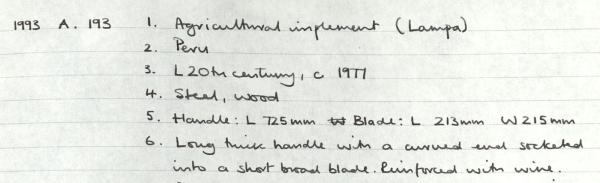 1993 A. 193 1. Agricultural implement (Lampa)
2. Peru
3. L 20th century, c 1977
4. Steel, wood
5. Handle: L 725mm Blade: L 213mm W 215mm
6. Long thick handle with a curved end socketed
into a short broad blade. Reinforced with wire.